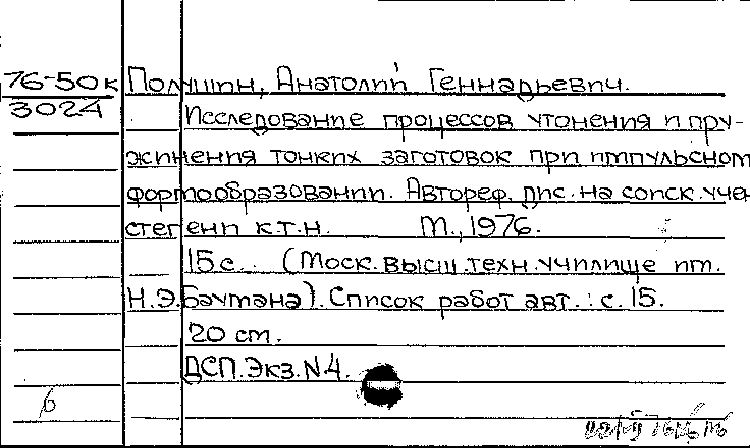 76-50к Полушин, Анатолий Геннадьевич.
3024
Исследование процессов утонения и пру-
жинения тонких заготовок при импульсном
формообразовании. Автореф. дис. на соиск. учен
степени к.т.н. М., 1976.
15 с. (Моск. высш. техн. училище им.
Н.Э.Баумана). Список работ авт.: с. 15.
20 см.
ДСП. Экз. N4.
б